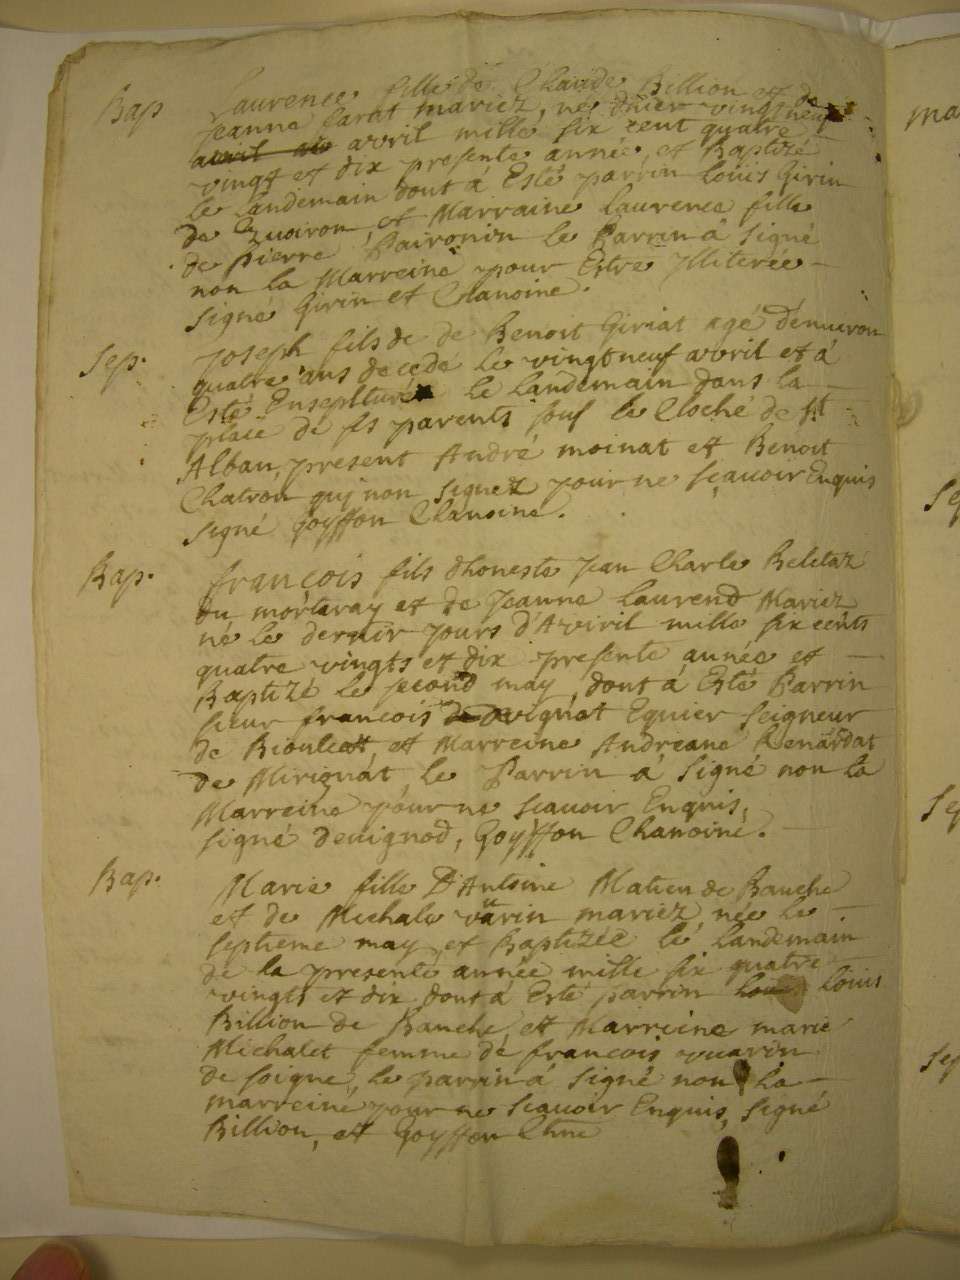 Bap Laurence fille de Claude Billion et de
Jeanne Carat mariez, née d'hier vingt neuf
avril mille six cent quatre
vingt et dix presente année, et Baptizé
le landemain dont à Esté parrin loüis Girin
de , et Marraine laurence fille
de pierre Paironin le Parrin â Signé
non la Marreine pour Estre Jlliterée
Signé Girin et Chanoine.
Sep. Joseph fils de de Benoit Giriat agé dénuiron
quatre ans decedé le vingtneuf avril et à
Esté Ensepulturé le landemain dans la
place de ses parents souf le Cloché de st
Alban, present André moinat et Benoit
Chatron quj non Signez pour ne sçauoir Enquis
Signé Goyffon Chanoine.
Bap. françois fils dhoneste Jean Charle Beletaz
du morteray et de Jeanne laurend Mariez
né le dernir jours d'Aviril mille six cents
quatre vingts et dix presente année et
Baptizé le second may, dont á Esté Parrin
sieur francois devignot Equier Seigneur
de , et Marreine Andreane Renardat
de Mirignat le Parrin á Signé non la
Marreine pour ne scauoir Enquis,
signé deuignod, Goyffon Chanoine.
Bap. Marie fille D'Antoine Matieu de Bauche
et de Michale värin mariez, née le
septieme may, et Baptizée le landemain
de la presente année mille six quatre
vingts et dix dont á Esté parrin louis
Billion de Bauche, et Marreine marie
Michalet femme de francois vuarin
de soigne, le parrin á Signé non la
marreine pour ne scauoir Enquis, Signé
Billion, et Goyffon Chne